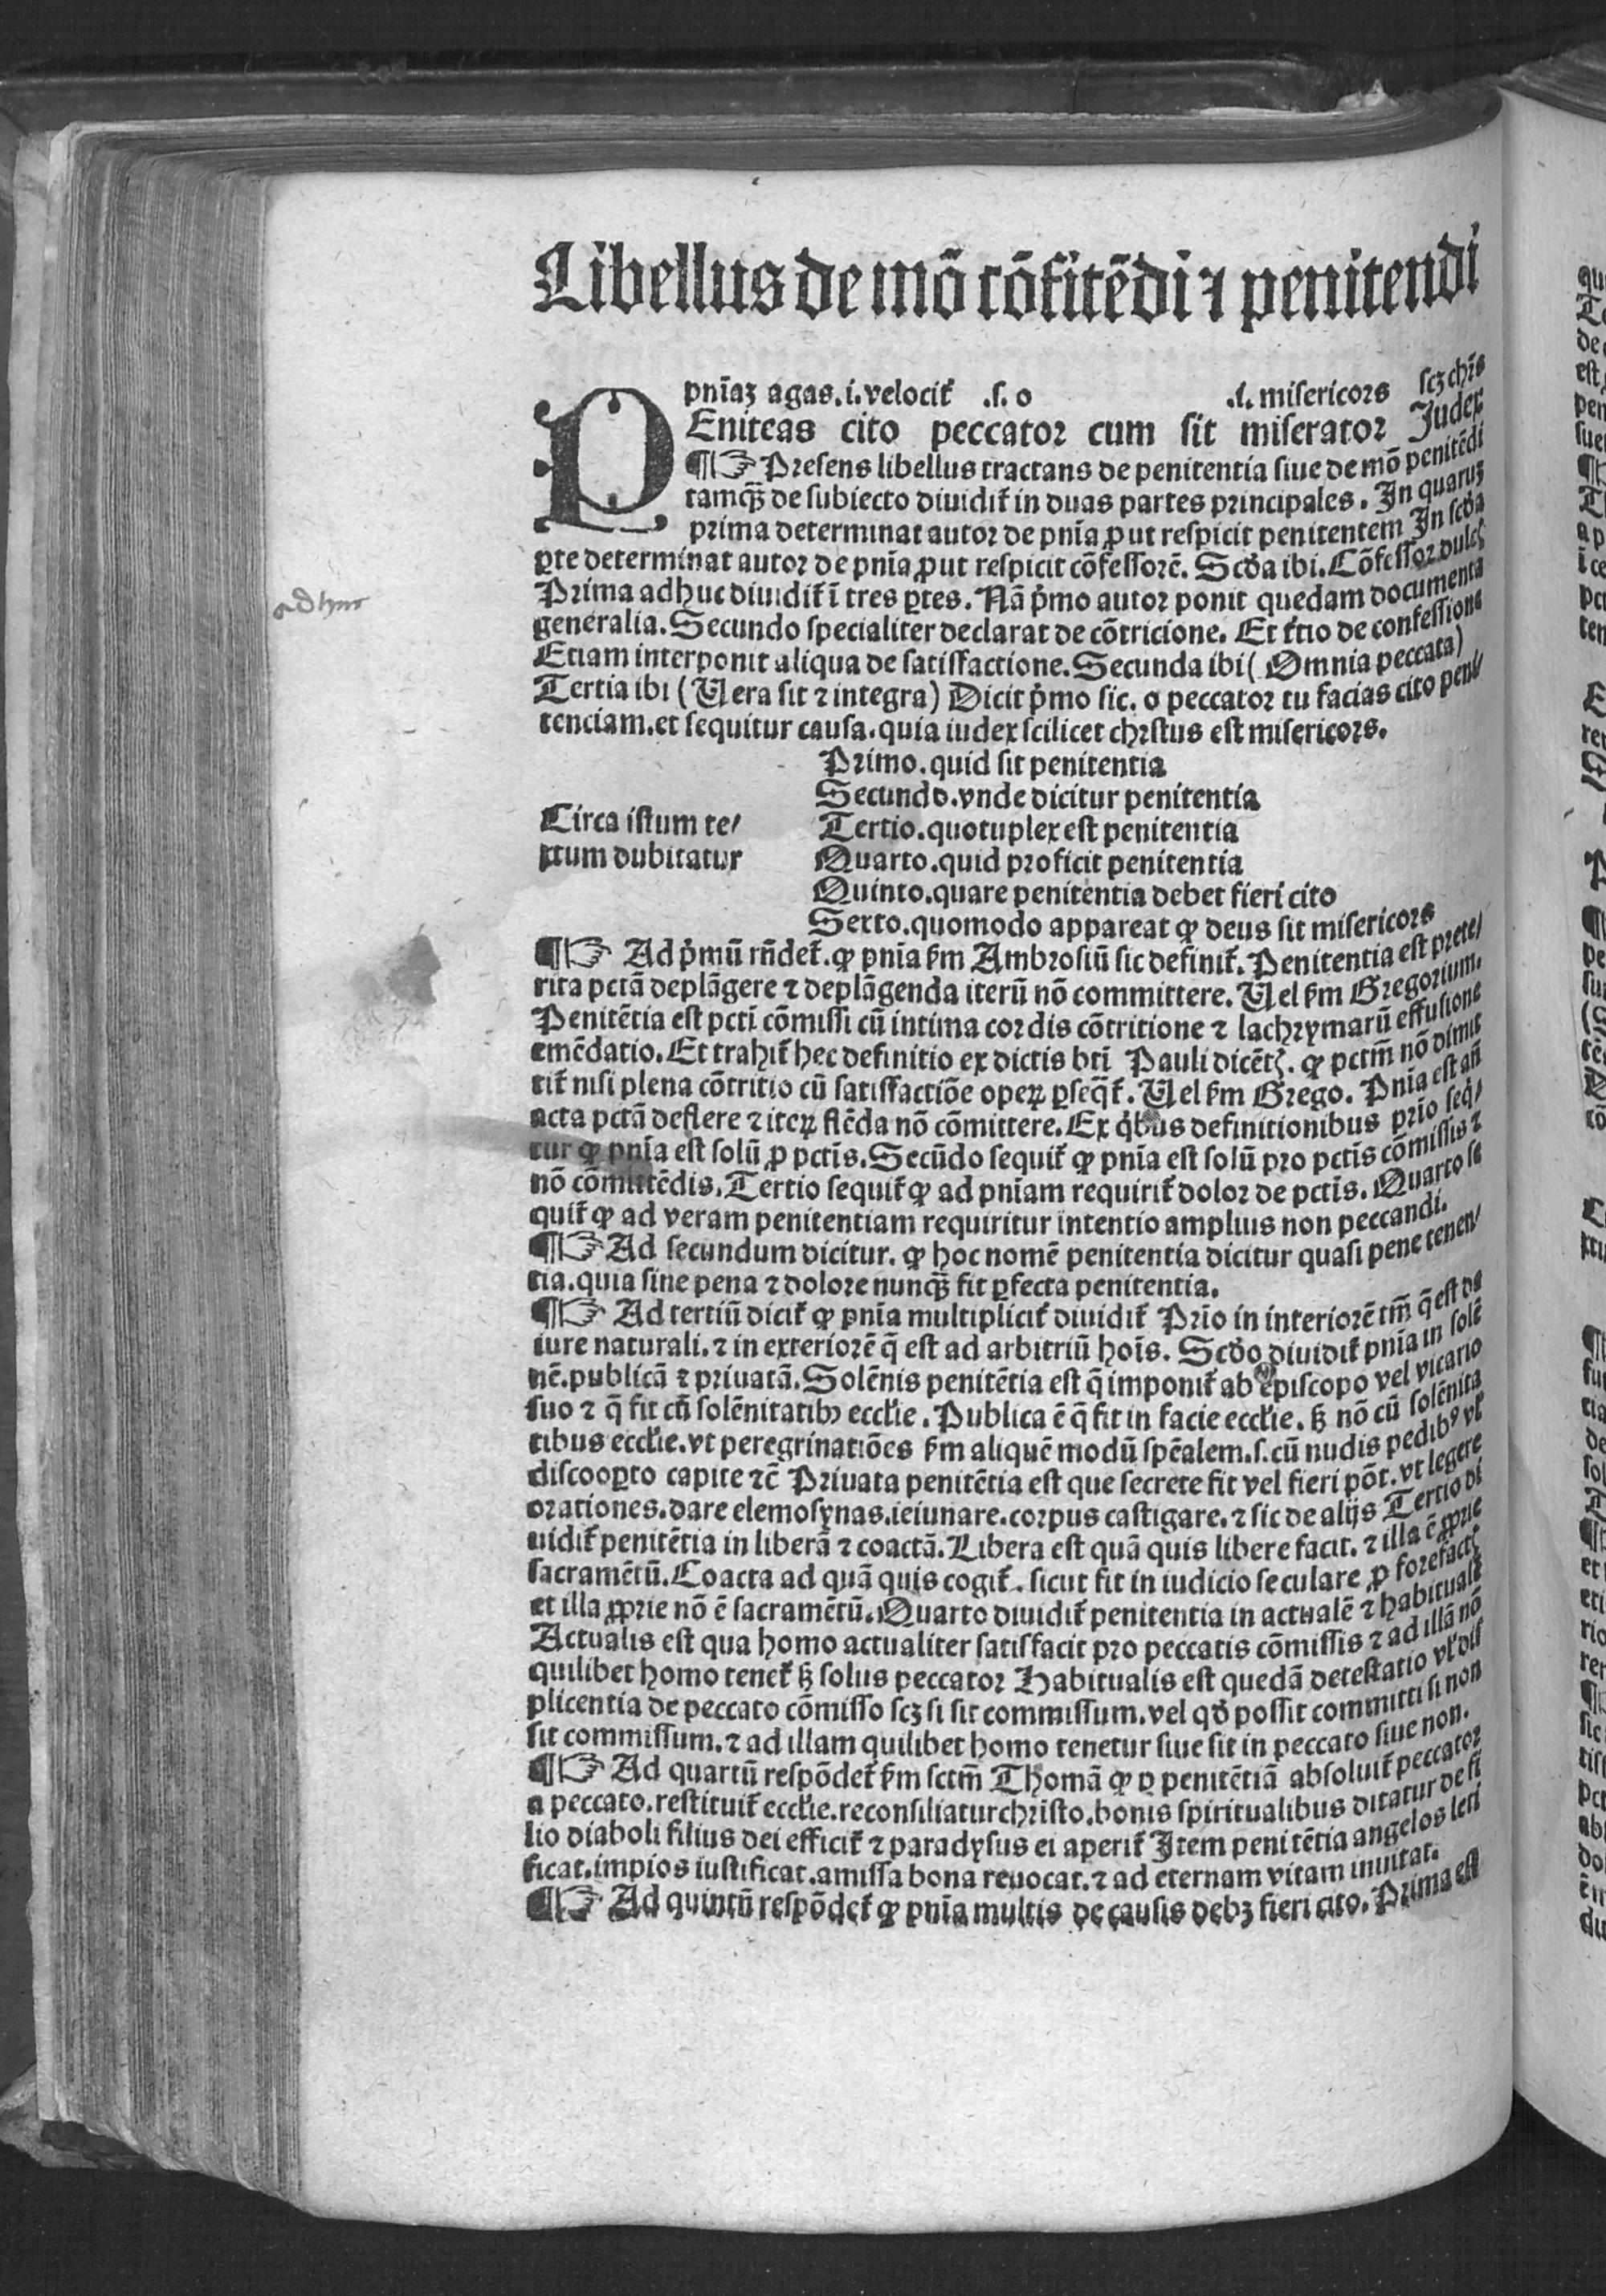 Libellus de mō cōfitēdi ⁊ penitendi
pnīaʒ agas.i.velocit᷑ .s. o .s. misericors scʒ chr̄s
PEniteas cito peccator cum sit miserator Iudex
¶☞ Presens libellus tractans de penitentia siue de mō penitēdi
tamqꝫ de subiecto diuidit᷑ in duas partes principales. In quaruʒ
prima determinat autor de pnīa ꝓut respicit penitentem In scd̓a
ꝑte determinat autor de pnīa ꝓut respicit cōfessorē. Scd̓a ibi. Cōfessor dulcꝭ
Prima adhuc diuidit᷑ ī tres ꝑtes. Nā p̓mo autor ponit quedam documenta
generalia. Secundo specialiter declarat de cōtricione. Et t᷑tio de confessione
Etiam interponit aliqua de satisfactione. Secunda ibi (Omnia peccata)
Tertia ibi (Uera sit ⁊ integra) Dicit p̓mo sic. o peccator tu facias cito peni/
tenciam.et sequitur causa.quia iudex scilicet chrstus est misericors.
Primo.quid sit penitentia
Secundo.vnde dicitur penitentia
Circa istum te/ Tertio.quotuplex est penitentia
xtum dubitatur Quarto.quid proficit penitentia
Quinto.quare penitentia debet fieri cito
Sexto.quomodo appareat ꝙ deus sit misericors
¶☞ Ad p̓mū rn̄det᷑.ꝙ pnīa ẜm Ambrosiū sic definit᷑. Penitentia est prete/
rita pctā deplāgere ⁊ deplāgenda iterū nō committere. Uel ẜm Gregorium.
Penitētia est pcti cōmissi cū intima cordis cōtritione ⁊ lachrymarū effusione
emēdatio. Et trahit᷑ hec definitio ex dictis bti Pauli dicētꝭ. ꝙ pctm̄ nō dimit
tit᷑ nisi plena cōtritio cū satisfactiōe operꝝ ꝑseq̄t᷑. Uel ẜm Grego. Pnīa est añ
acta pctā deflere ⁊ iteꝝ flēda nō cōmittere. Ex q̓bus definitionibus prīo seq̓/
tur ꝙ pnīa est solū ꝓ pctīs. Secūdo sequit᷑ ꝙ pnīa est solū pro pctīs cōmissis ⁊
nō cōmittēdis. Tertio sequit᷑ ꝙ ad pnīam requirit᷑ dolor de pctīs. Quarto se
quit᷑ ꝙ ad veram penitentiam requiritur intentio amplius non peccandi.
¶☞ Ad secundum dicitur. ꝙ hoc nomē penitentia dicitur quasi pene tenen/
tia.quia sine pena ⁊ dolore nunqꝫ fit ꝑfecta penitentia.
¶☞ Ad tertiū dicit᷑ ꝙ pnīa multiplicit᷑ diuidit᷑ Prīo in interiorē tm̄ q̄ est de
iure naturali.⁊ in exteriorē q̄ est ad arbitriū hoīs. Scd̓o diuidit᷑ pnīa in solē
nē.publicā ⁊ priuatā. Solēnis penitētia est q̄ imponit᷑ ab episcopo vel vicario
suo ⁊ q̄ fit cū solēnitatibꝰ ecclīe. Publica ē q̄ fit in facie ecclīe. sꝫ nō cū solēnita
tibus ecclīe.vt peregrinatiōes ẜm aliquē modū spēalem.s.cū nudis pedibꝰ vl̓
discooꝑto capite ⁊c̄ Priuata penitētia est que secrete fit vel fieri pōt.vt legere
orationes.dare elemosynas.ieiunare.corpus castigare.⁊ sic de alijs Tertio di
uidit᷑ penitētia in liberā ⁊ coactā. Libera est quā quis libere facit.⁊ illa ē ꝓprie
sacramētū. Coacta ad quā quis cogit᷑. sicut fit in iudicio seculare ꝓ forefactꝭ
et illa ꝓprie nō ē sacramētū. Quarto diuidit᷑ penitentia in actualē ⁊ habitualē
Actualis est qua homo actualiter satisfacit pro peccatis cōmissis ⁊ ad illā nō
quilibet homo tenet᷑ sꝫ solus peccator Habitualis est quedā detestatio vl̓ dis
plicentia de peccato cōmisso scʒ si sit commissum.vel qd̓ possit committi si non
sit commissum.⁊ ad illam quilibet homo tenetur siue sit in peccato siue non.
¶☞ Ad quartū respōdet᷑ ẜm sctm̄ Thomā ꝙ ꝑ penitētiā absoluit᷑ peccator
a peccato.restituit᷑ ecclīe.reconsiliaturchristo.bonis spiritualibus ditatur de fi
lio diaboli filius dei efficit᷑ ⁊ paradysus ei aperit᷑ Item penitētia angelos leti
ficat.impios iustificat.amissa bona reuocat.⁊ ad eternam vitam inuitat.
¶☞ Ad quintū respōdet᷑ ꝙ pnīa multis de causis debʒ fieri cito. Prima est
adhuc